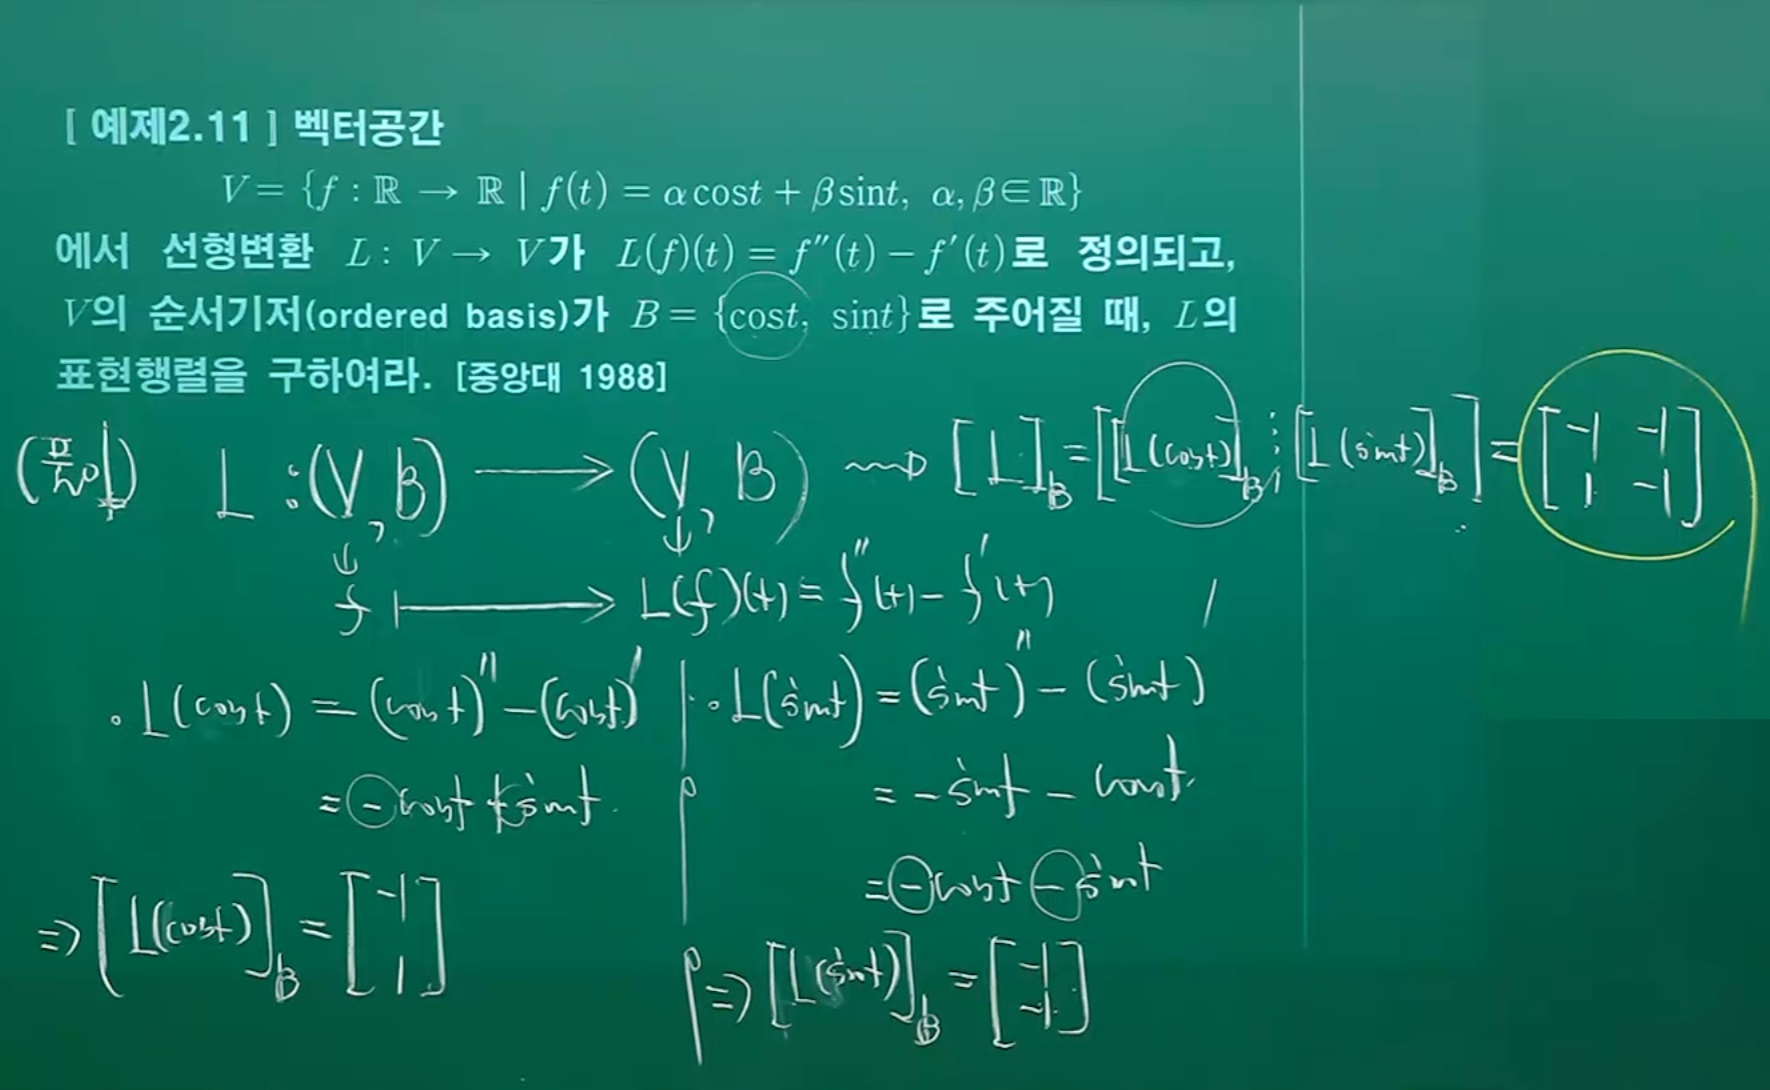 [ 예제2.11 ] 벡터공간
V = {f : ℝ → ℝ | f(t) = α cost + β sint, α, β ∈ ℝ}
에서 선형변환 L : V → V가 L(f)(t) = f″(t) − f′(t)로 정의되고,
V의 순서기저(ordered basis)가 B = {cost, sint}로 주어질 때, L의
표현행렬을 구하여라. [중앙대 1988]
(풀이) L : (V, B) → (V, B) ⇝ [L]_B = [[L(cost)]_B ⋮ [L(sint)]_B] = [-1 -1; 1 -1]
f ↦ L(f)(t) = f″(t) − f′(t)
· L(cost) = (cost)″ − (cost)′
= −cost + sint.
⇒ [L(cost)]_B = [-1; 1]
· L(sint) = (sint)″ − (sint)′
= −sint − cost.
= −cost − sint
⇒ [L(sint)]_B = [-1; -1]